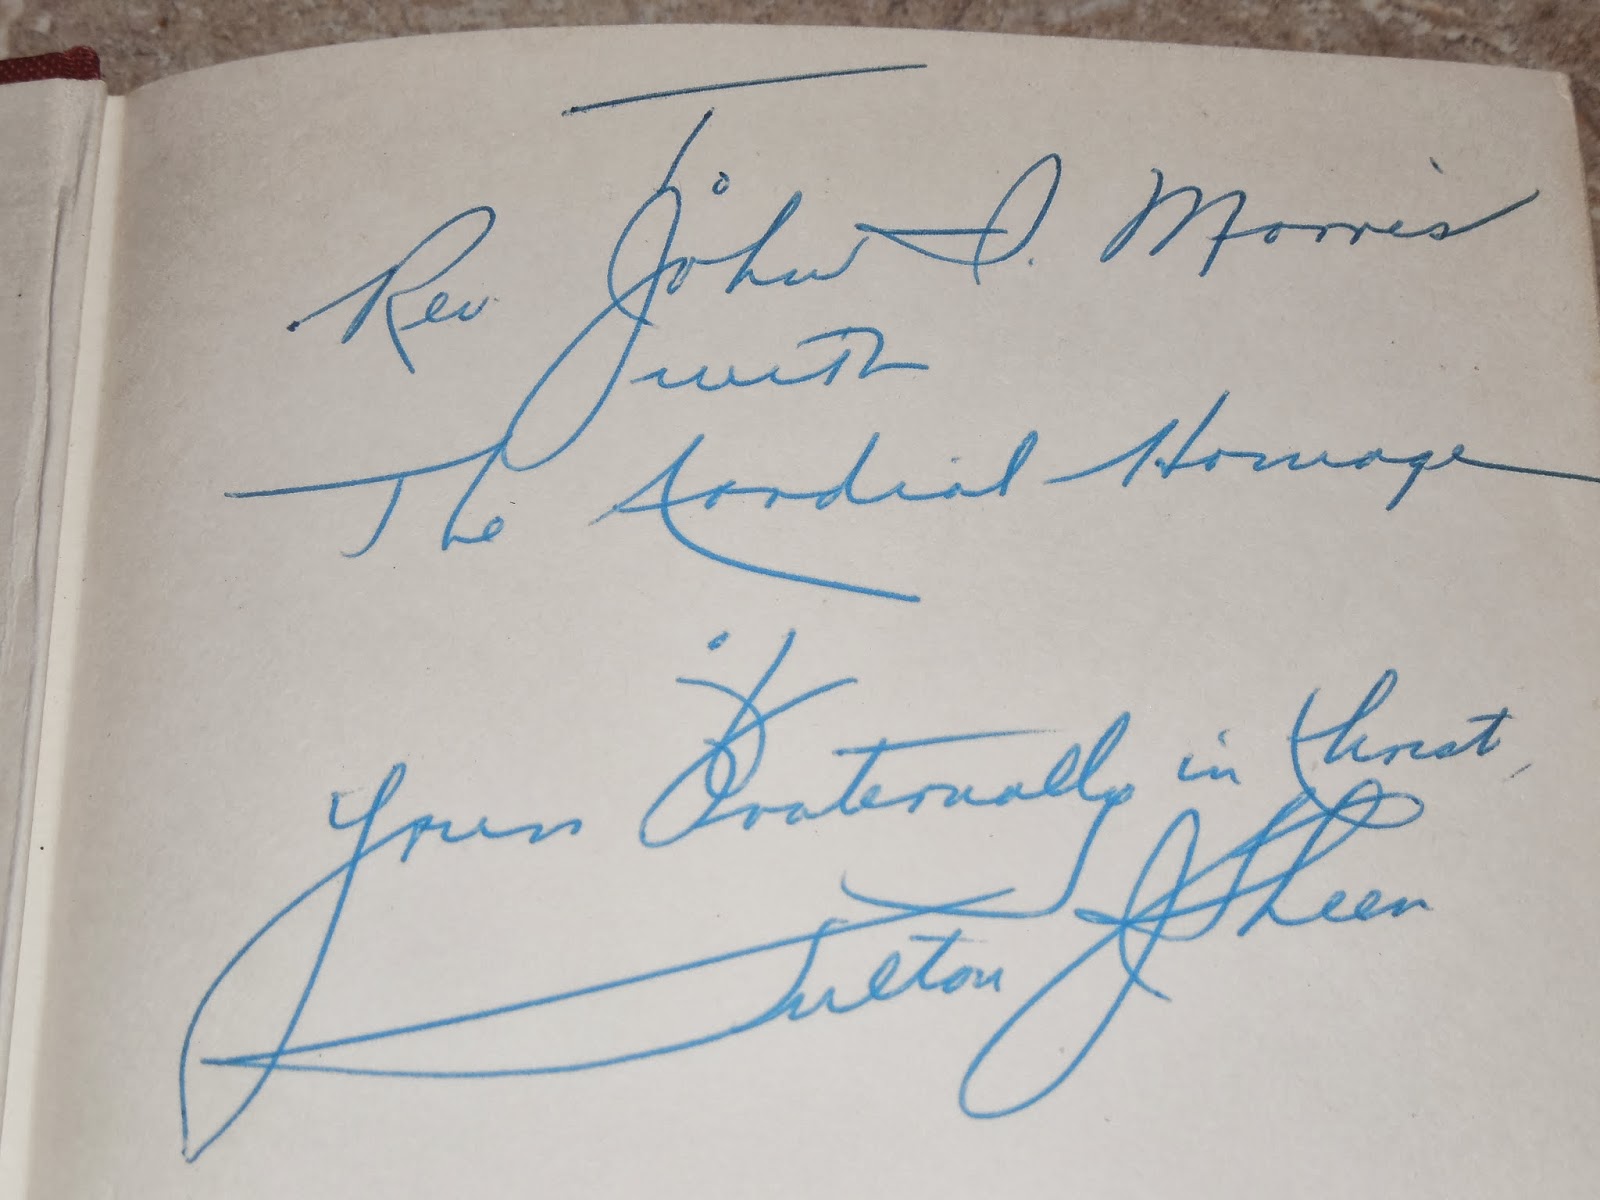 To
Rev John S. Morris
with
The Kordial Homage
of
Yours Fraternally in Christ,
Fulton J Sheen